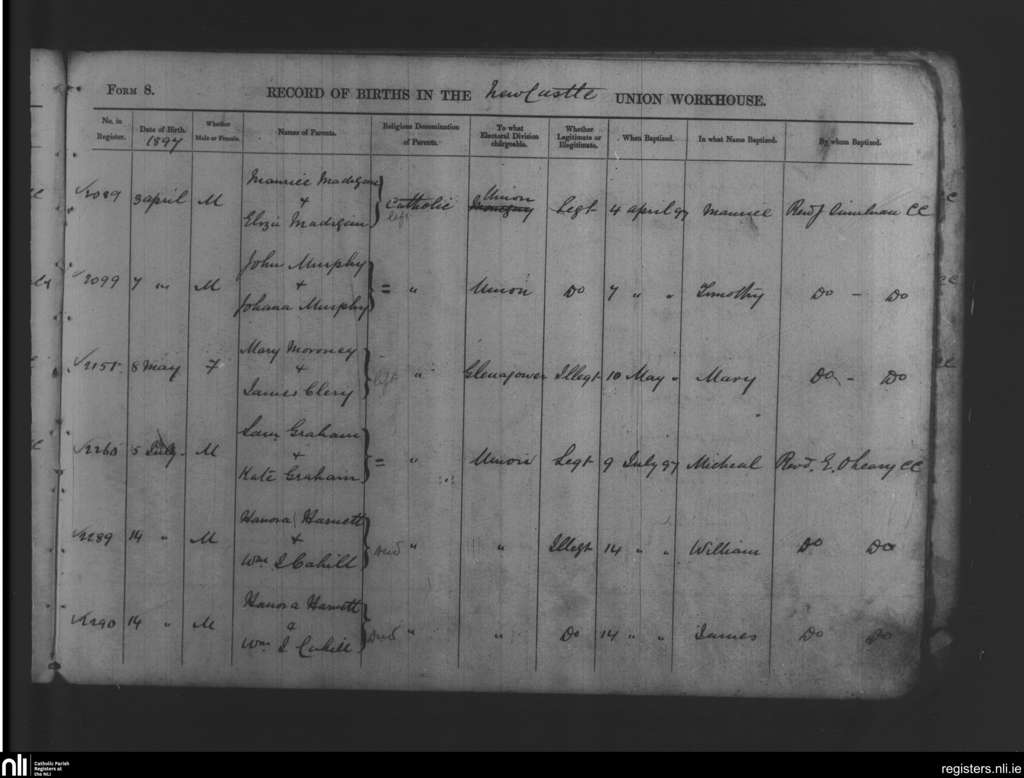 FORM 8. RECORD OF BIRTHS IN THE NewCastle UNION WORKHOUSE.
No. in Register. Date of Birth. 1897 Whether Male or Female. Names of Parents. Religious Denomination of Parents. To what Electoral Division chargeable. Whether Legitimate or Illegitimate. When Baptized. In what Name Baptized. By whom Baptized.
2089 3 april M Maurice Madigan + Eliza Madigan Catholic left Union Legt 4 april 97 Maurice Revd J CC
2099 7 " M John Murphy + Johana Murphy = " Union Do 7 " " Timothy Do - Do
2151 8 May F Mary Moroney + James Clery left " Glenagower Illegt 10 May " Mary Do - Do
2260 5 July M Sam Graham + Kate Graham = " Union Legt 9 July 97 Micheal Revd. E. O'Leary CC
2289 14 " M Hanora Harnett + Wm I Cahill Died " " Illegt 14 " " William Do Do
2290 14 " M Hanora Harnett & Wm I Cahill Died " " Do 14 " " James Do Do
nli Catholic Parish Registers at the NLI
registers.nli.ie